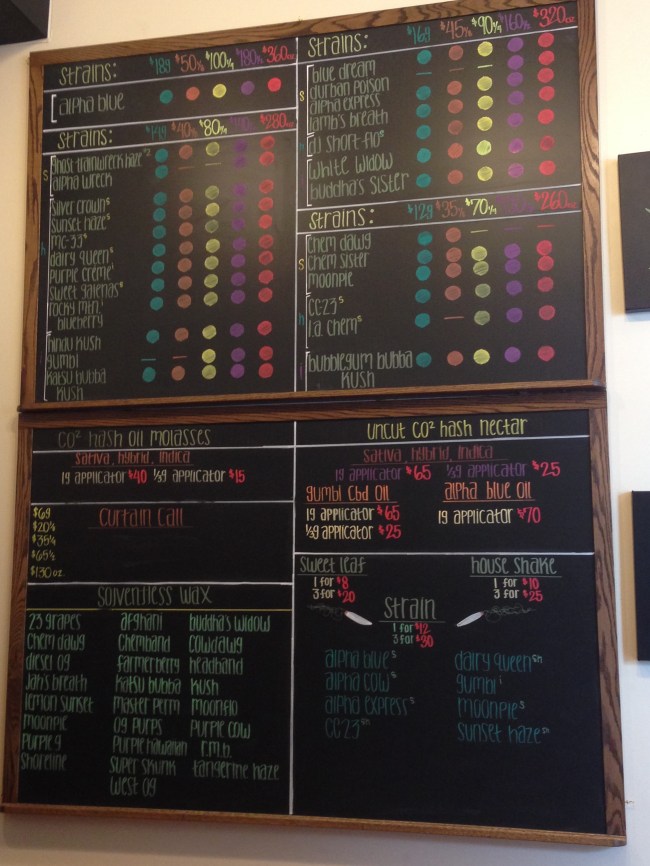 strains: $18g $50⅛ $100¼ $180½ $360oz
alpha blue
strains: $14g $40⅛ $80¼ $280oz
s
ghost-trainwreck haze
alpha wreck
h
silver crown
sunset haze
mc-33
dairy queen
purple creme
sweet
rocky mtn.
blueberry
hindu kush
gumbi
katsu bubba
kush
strains: $16g $45⅛ $90¼ $160½ $320oz
s
blue dream
durban poison
alpha express
lamb's breath
h
flo
white widow
buddha's sister
strains: $12g $35⅛ $70¼ $260oz
s
chem dawg
chem sister
moonpie
h
CC-23 s
l.a. chem s
bubblegum bubba
kush
CO² hash oil molasses
sativa, hybrid, indica
1g applicator $40 ½g applicator $15
curtain call
$6g
$20⅛
$35¼
$65½
$130oz
solventless wax
23 grapes
chem dawg
diesel og
jah's breath
lemon sunset
moonpie
purple g
shoreline
afghani
chemband
farmerberry
katsu bubba
master perm
og purps
purple hawaiian
super skunk
west og
buddha's widow
cowdawg
headband
kush
moonflo
purple cow
r.m.b.
tangerine haze
uncut CO² hash nectar
sativa, hybrid, indica
1g applicator $65 ⅓g applicator $25
gumbi cbd oil
1g applicator $65
⅓g applicator $25
alpha blue oil
1g applicator $70
sweet leaf
1 for $8
3 for $20
house shake
1 for $10
3 for $25
strain
1 for $12
3 for $30
alpha blue s
alpha cow s
alpha express s
CC-23 sh
dairy queen sh
gumbi i
moonpie s
sunset haze sh